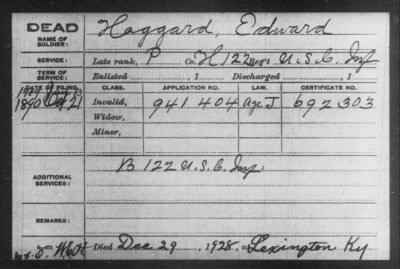 DEAD
NAME OF SOLDIER: Haggard, Edward
SERVICE: Late rank, P Co. H, 122 Reg't U.S.C. Inf
TERM OF SERVICE: Enlisted , 1 Discharged , 1
DATE OF FILING. CLASS. APPLICATION NO. LAW. CERTIFICATE NO.
1890 Oct 21 Invalid, 941 404 Age J 692 303
Widow,
Minor,
ADDITIONAL SERVICES: B 122 U.S.C. Inf.
REMARKS:
Died Dec 29, 1928, at Lexington Ky